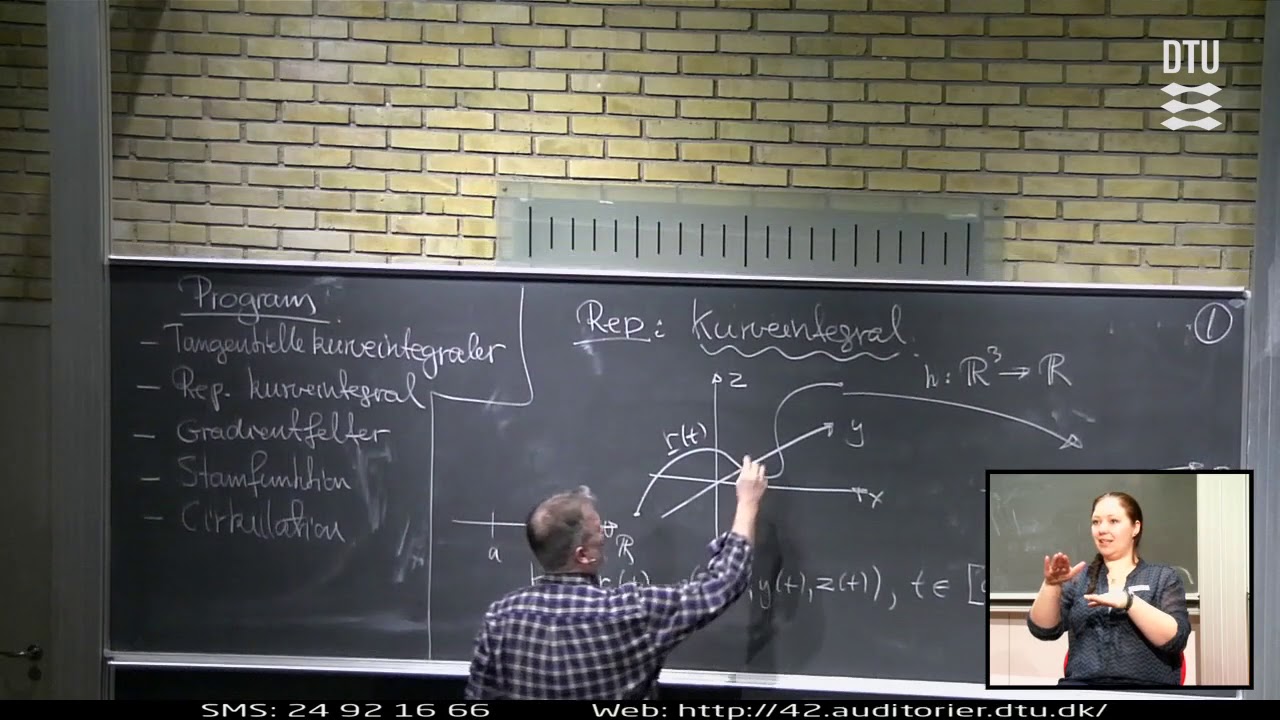 DTU
Program
- Tangentielle kurveintegraler
- Rep. kurveintegral
- Gradientfelter
- Stamfunktion
- Cirkulation
Rep: Kurveintegral
1
h: ℝ³ → ℝ
z
r(t)
y
x
a
ℝ
r(t)
,y(t),z(t)), t ∈ [
SMS: 24 92 16 66 Web: http://42.auditorier.dtu.dk/